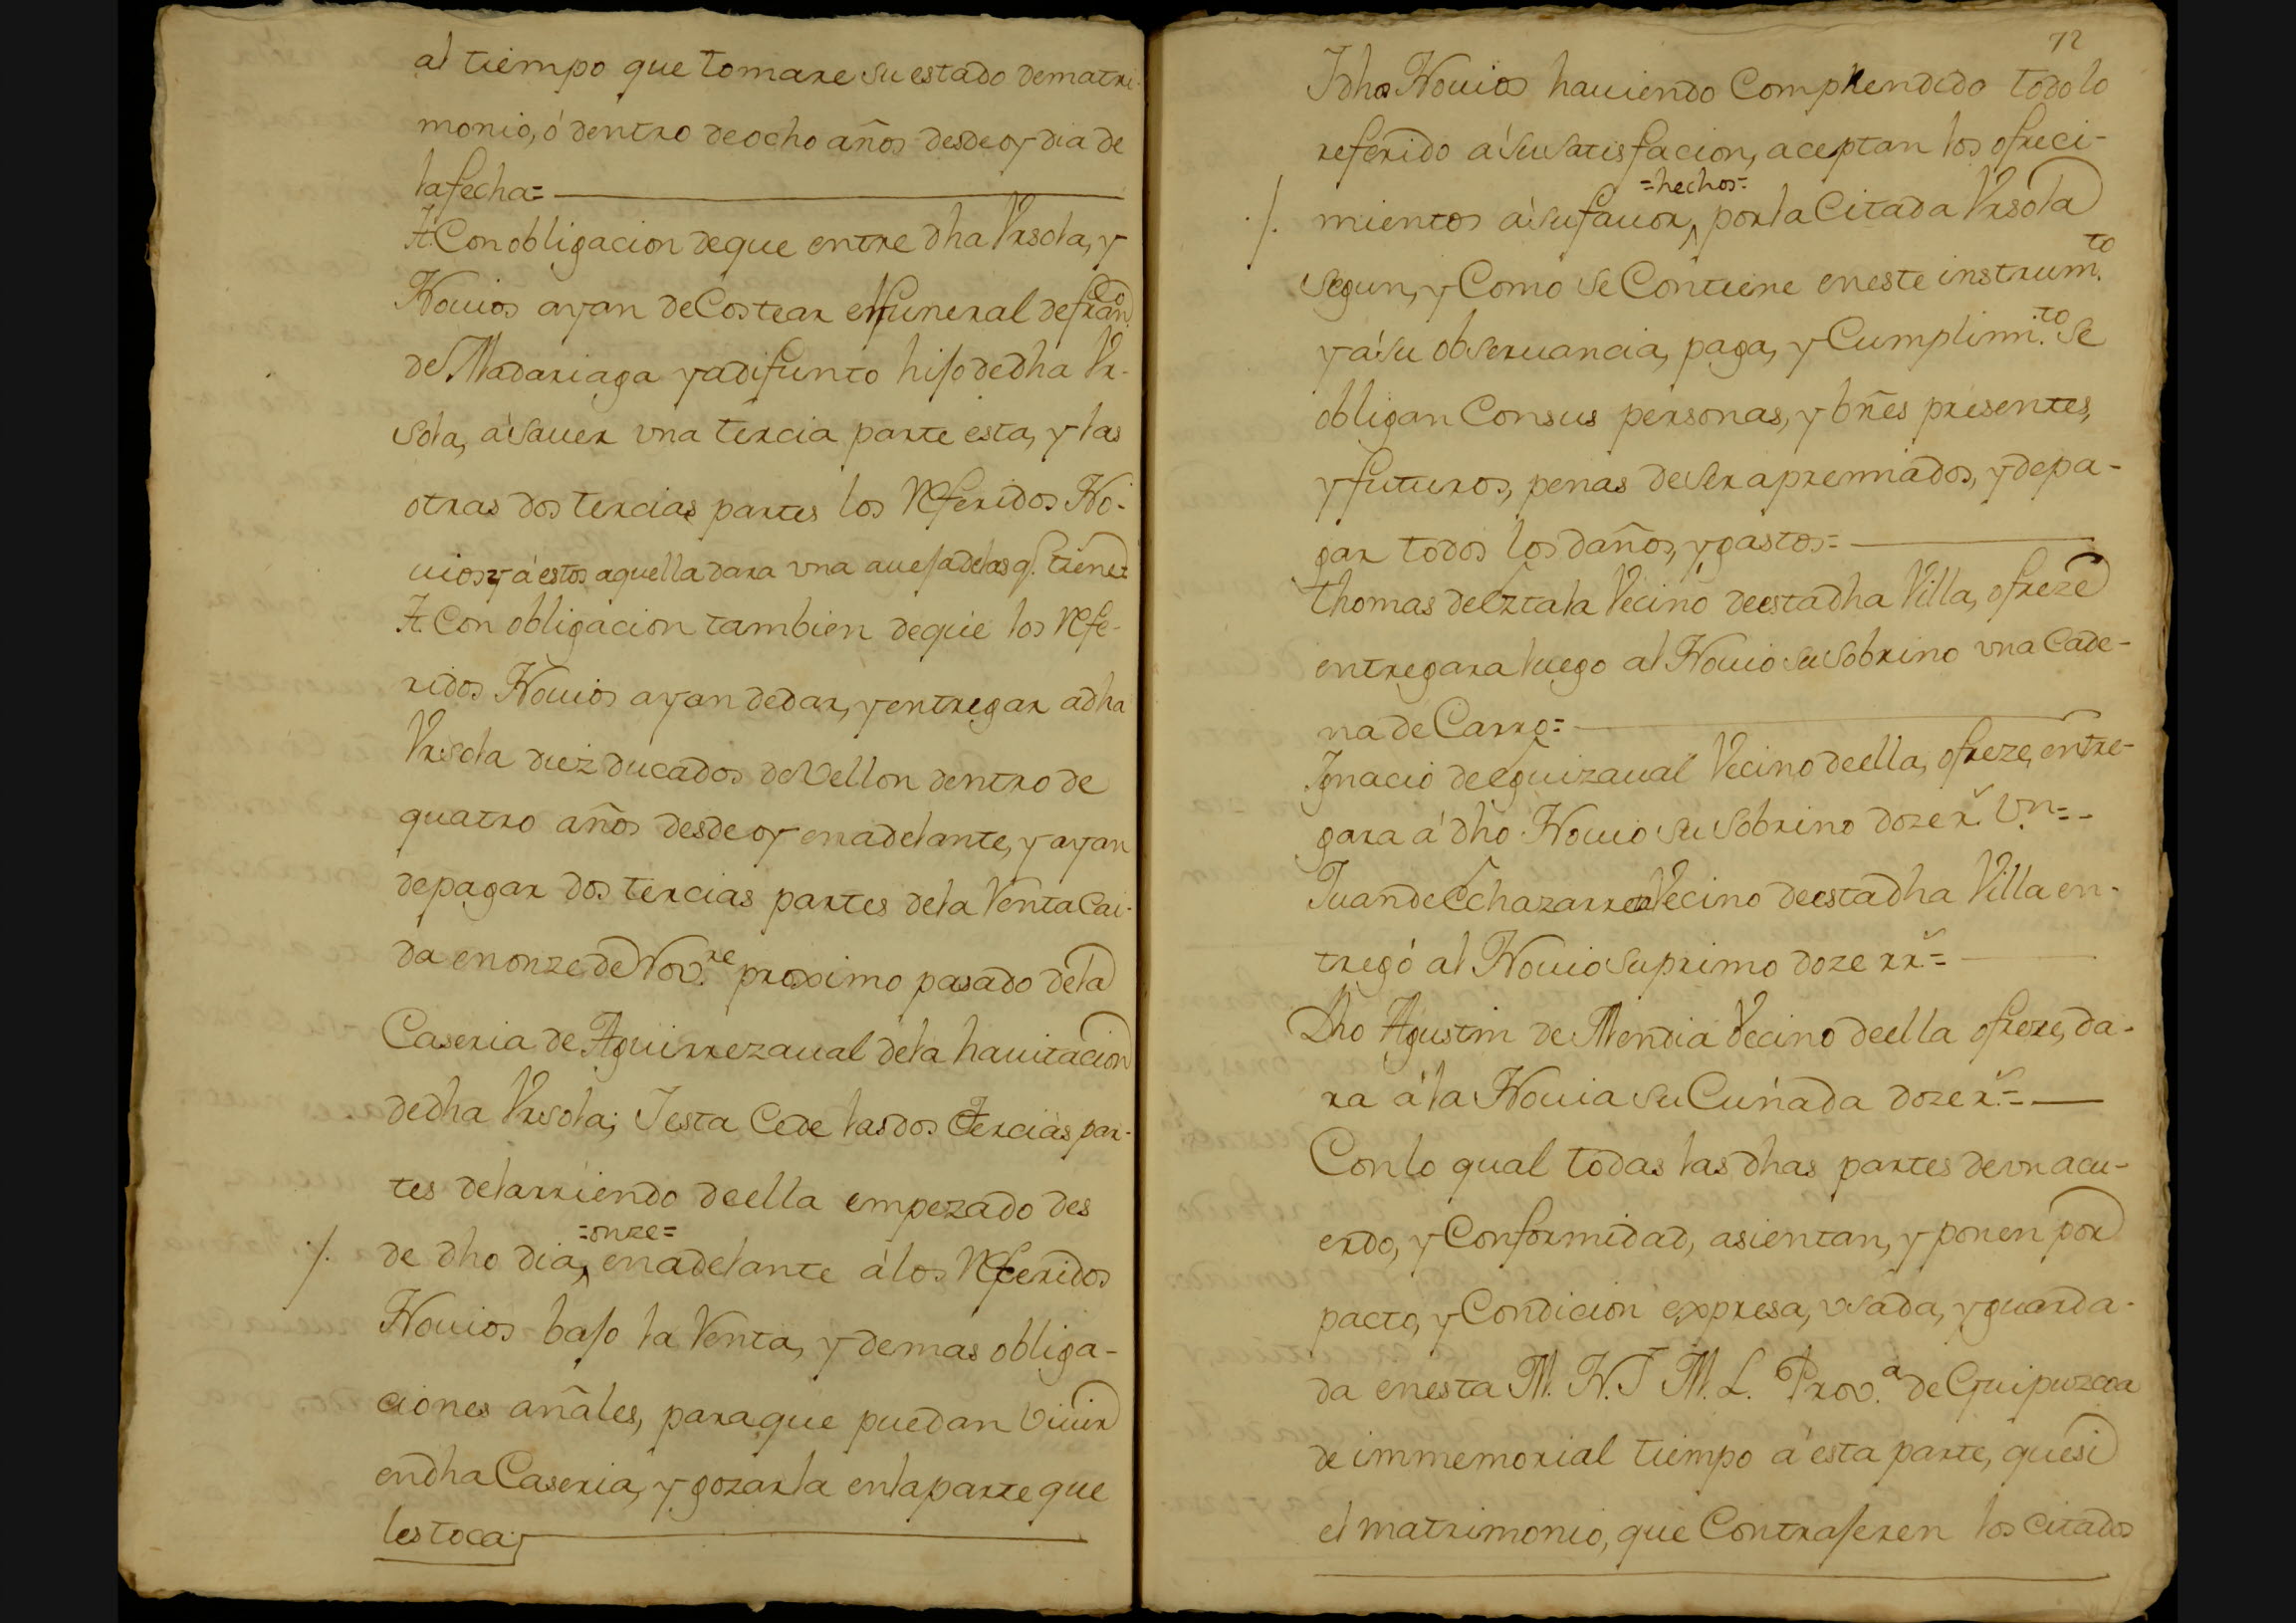 al tiempo que tomare su estado de matri-
monio, ó dentro de ocho años desde oy dia de
la fecha=
It. Con obligacion de que entre dha Vrsola, y
Novios ayan de Costear el funeral de fran.co
de Madariaga ya difunto hijo de dha Vr-
sola, á saver vna tercia parte esta, y las
otras dos tercias partes los Referidos No-
vios y á estos aquella dara vna aveja de las q.e tiene=
It. Con obligacion tambien de que los Refe-
ridos Novios ayan de dar, y entregar a dha
Vrsola diez ducados de Vellon dentro de
quatro años desde oy en adelante, y ayan
de pagar dos tercias partes de la Renta Cai-
da en onze de Nov.re proximo pasado de la
Caseria de Aguirrezaual de la hauitacion
de dha Vrsola; I esta Cede las dos tercias par-
tes del arriendo de ella empezado des
./. de dho dia, =onze= en adelante á los Referidos
Novios bajo la Renta, y demas obliga-
ciones añales, para que puedan Vivir
en dha Caseria, y gozarla en la parte que
les toca;
72
I dhos Novios haviendo Comprendido todo lo
referido á su satisfacion, aceptan los ofreci-
./. mientos á su favor, =hechos= por la Citada Vrsola
segun, y Como se Contiene en este instrum.to
y á su observancia, paga, y Cumplim.to se
obligan Con sus personas, y bñes presentes,
y futuros, penas de ser apremiados, y de pa-
gar todos los daños, y gastos=
Thomas de Eztala Vecino de esta dha Villa, ofreze
entregara luego al Novio su sobrino vna Cade-
na de Carro=
Ignacio de Eguizaual Vecino de ella, ofreze, entre-
gara á dho Novio su sobrino doze r.s V.n=-
Juan de Echazarreta Vecino de esta dha Villa en-
tregó al Novio su primo doze rr.s=
Dho Agustin de Mendia Vecino de ella ofreze, da-
ra á la Novia su Cuñada doze r.s=
Con lo qual todas las dhas partes de vn acu-
erdo, y Conformidad, asientan, y ponen por
pacto, y Condicion expresa, vsada, y guarda-
da en esta M. N. I M. L. Prov.a de Guipuzcoa
de immemorial tiempo á esta parte, que si
el matrimonio, que Contrajeren los citados